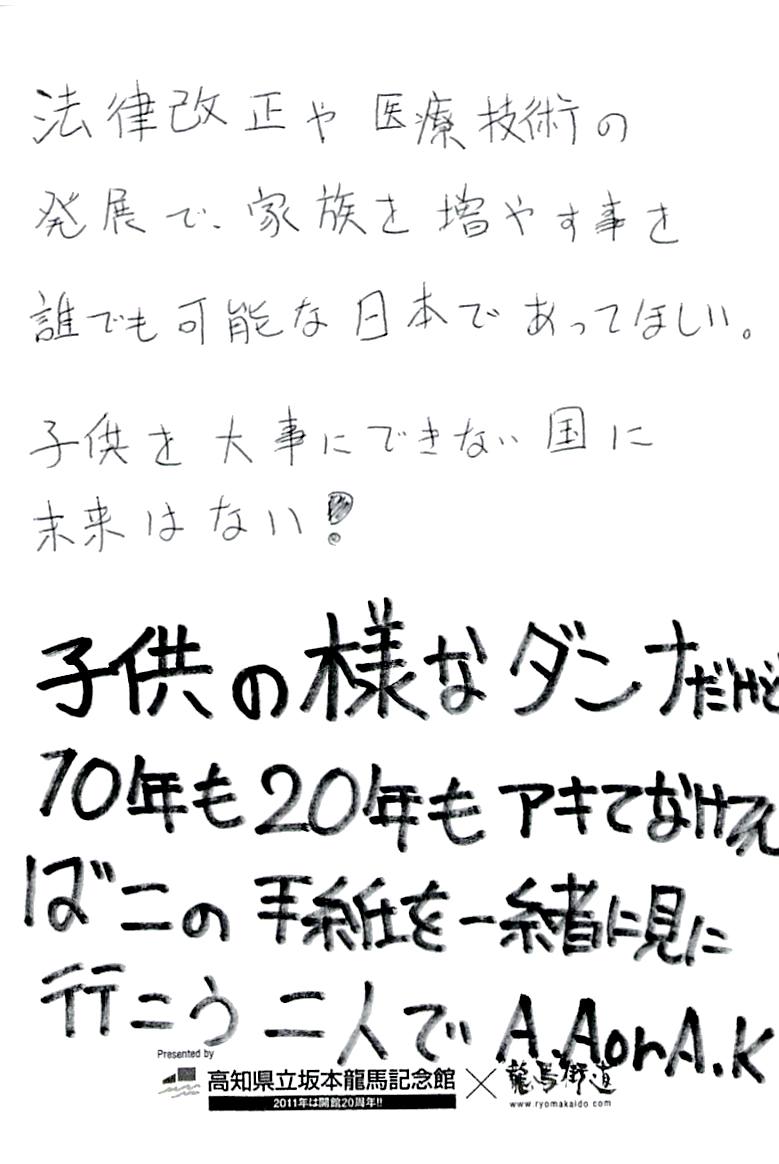 法律改正や医療技術の
発展で、家族を増やす事を
誰でも可能な日本であってほしい。
子供を大事にできない国に
未来はない!
子供の様なダンナだけど
10年も20年もアキてなけれ
ばこの手紙を一緒に見に
行こう二人で A.AorA.K
Presented by
高知県立坂本龍馬記念館×龍馬街道
2011年は開館20周年!!
www.ryomakaido.com